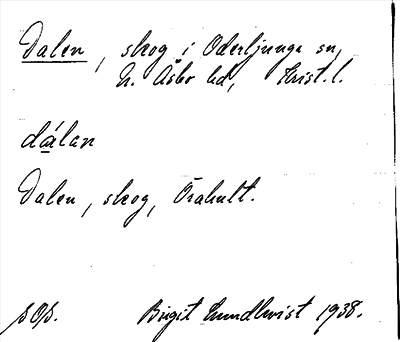 Dalen, skog i Oderljunga sn,
N. Åsbo hd, Krist. l.
dálan
Dalen, skog, Örahult.
sOp. Birgit Lundkvist 1938.